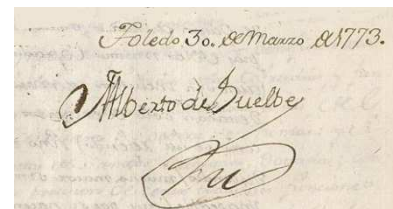 Toledo 30. de Marzo de 1773.
Alberto de Suelbe